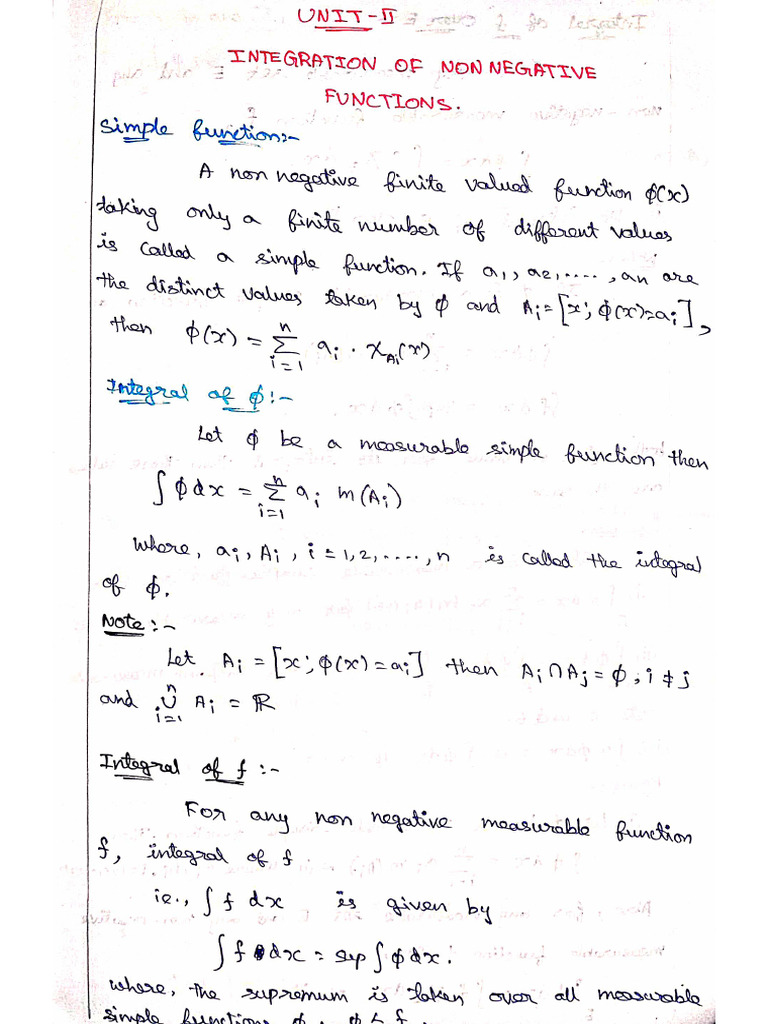 UNIT-II
INTEGRATION OF NON NEGATIVE
FUNCTIONS.
Simple function:-
A non negative finite valued function ϕ(x)
taking only a finite number of different values
is called a simple function. If a₁, a₂, ...., an are
the distinct values taken by ϕ and Aᵢ = [x; ϕ(x)=aᵢ],
then ϕ(x) = ∑ⁿᵢ₌₁ aᵢ · χ_Aᵢ(x)
Integral of ϕ:-
Let ϕ be a measurable simple function then
∫ϕdx = ∑ⁿᵢ₌₁ aᵢ m(Aᵢ)
where, aᵢ, Aᵢ, i = 1, 2, ...., n is called the integral
of ϕ.
Note:-
Let Aᵢ = [x; ϕ(x) = aᵢ] then Aᵢ∩Aⱼ = ϕ, i ≠ j
and ∪ⁿᵢ₌₁ Aᵢ = ℝ
Integral of f:-
For any non negative measurable function
f, integral of f
ie., ∫f dx is given by
∫f dx = sup ∫ϕdx.
where, the supremum is taken over all measurable
simple functions ϕ, ϕ ≤ f.